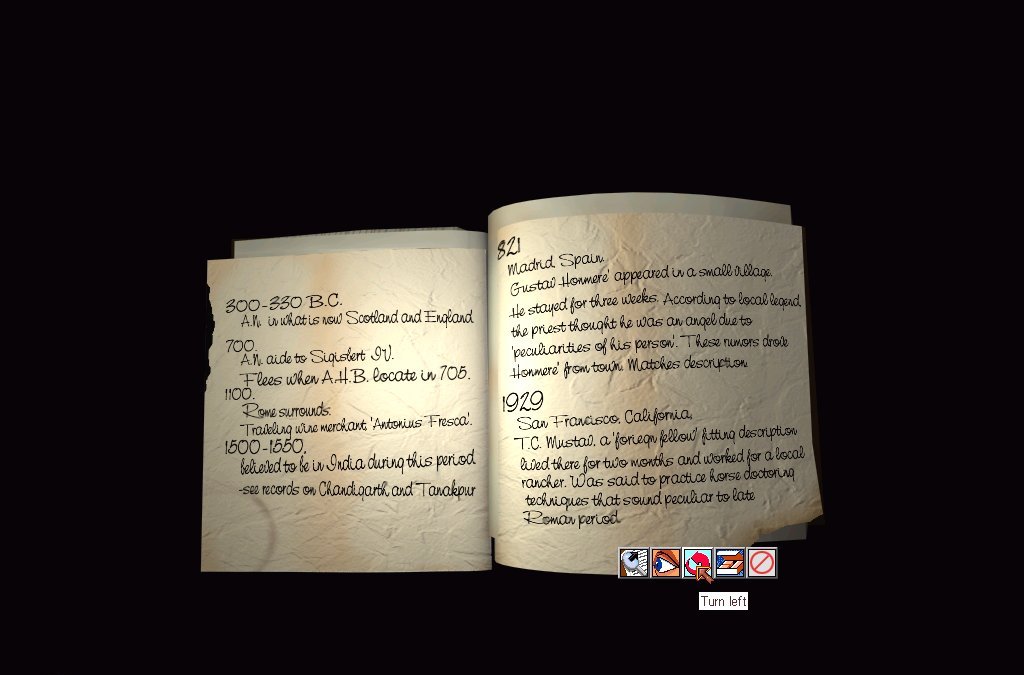 300-330 B.C.
A.N. in what is now Scotland and England
700.
A.N. aide to Sigisbert IV.
Flees when A.H.B. locate in 705.
1100.
Rome surrounds.
Traveling wine merchant, 'Antonius Fresca'.
1500-1550.
believed to be in India during this period
-see records on Chandigarth and Tanakpur
821
Madrid. Spain.
Gustav Honmere' appeared in a small village.
He stayed for three weeks. According to local legend
the priest thought he was an angel due to
'peculiarities of his person'. These rumors drove
Honmere' from town. Matches description
1929
San Francisco, California,
T.C. Mustav, a 'foriegn fellow' fitting description
lived there for two months and worked for a local
rancher. Was said to practice horse doctoring
techniques that sound peculiar to late
Roman period.
Turn left